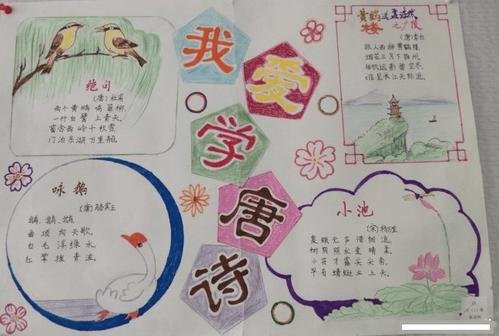 我
爱
学
唐
诗
绝句
(唐)杜甫
两个黄鹂鸣翠柳,
一行白鹭上青天。
窗含西岭千秋雪
门泊东吴万里船。
黄鹤楼送孟浩然
之广陵
(唐)李白
故人西辞黄鹤楼,
烟花三月下扬州。
孤帆远影碧空尽,
唯见长江天际流。
咏鹅
(唐)骆宾王
鹅,鹅,鹅
曲项向天歌。
白毛浮绿水,
红掌拨清波。
小池
(宋)杨万里
泉眼无声惜细流,
树阴照水爱晴柔。
小荷才露尖尖角,
早有蜻蜓立上头。